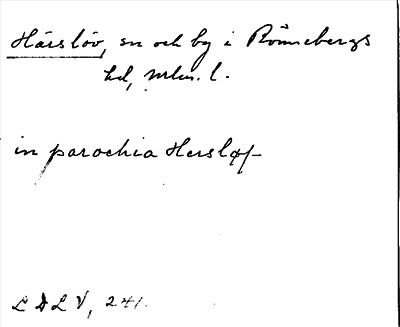 Härslöv, sn och by i Rönnebergs
hd, Mlm. l.
in parochia Hersløf
L D L V, 241.